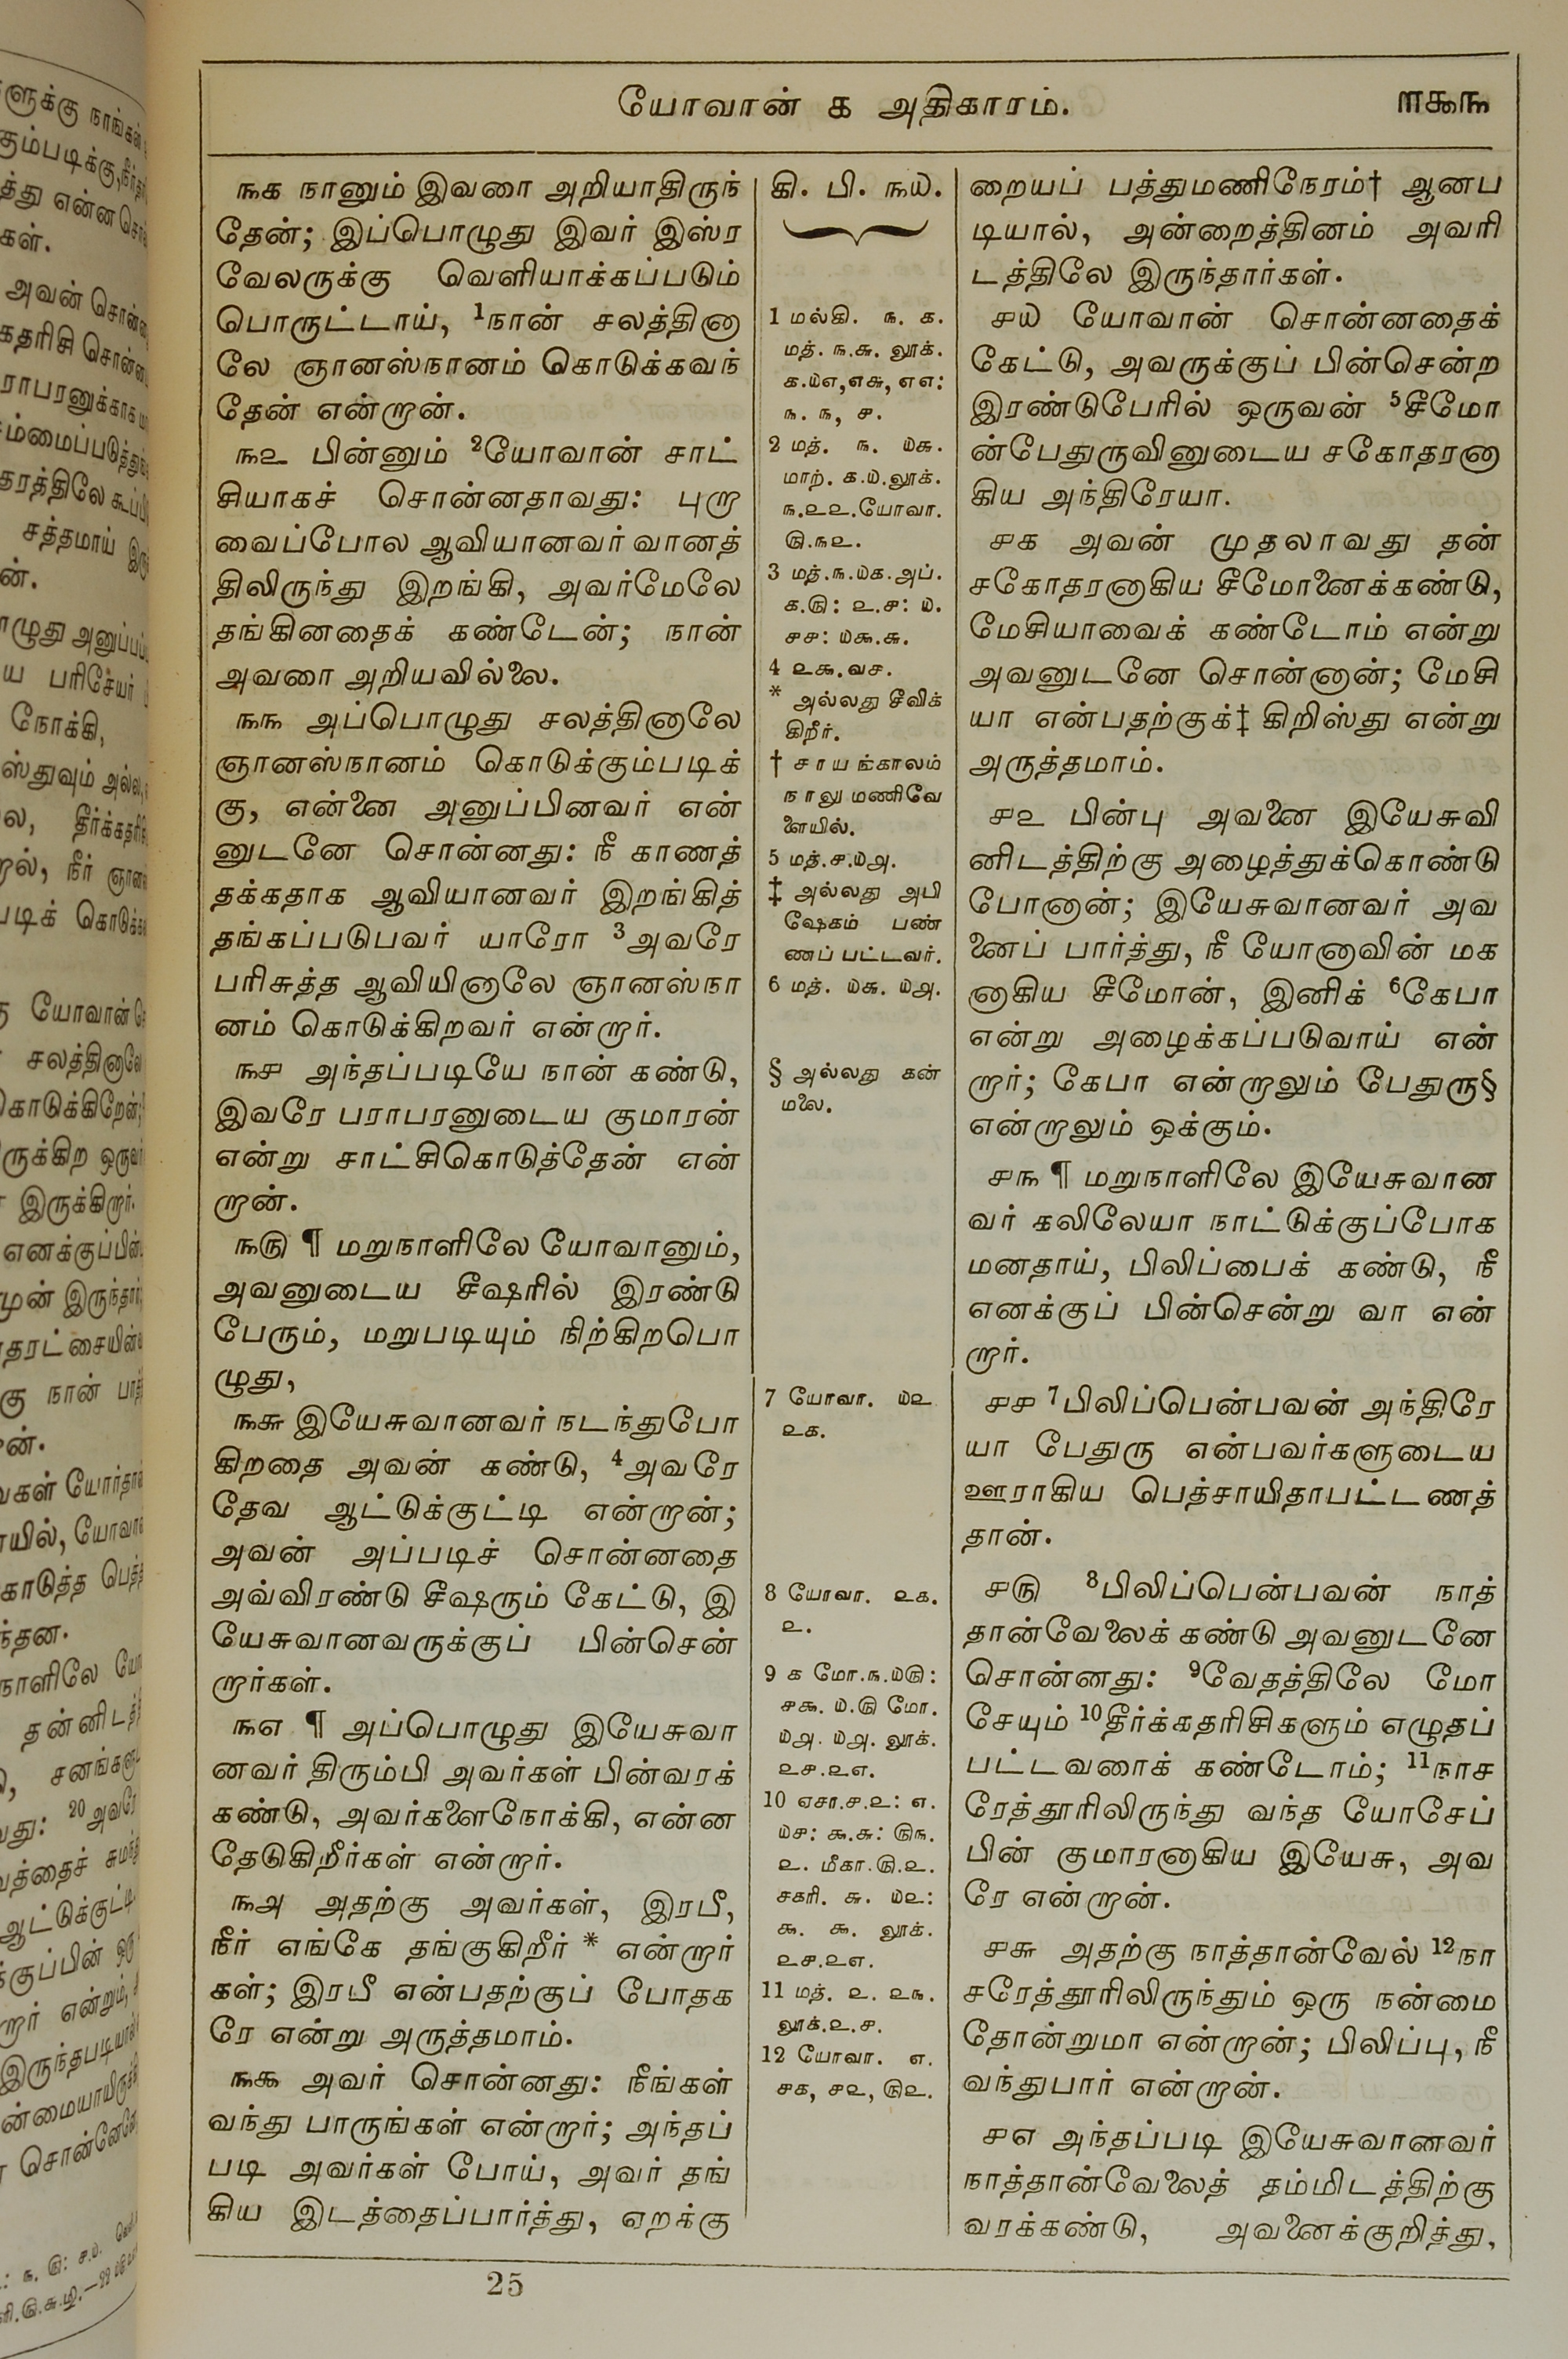 யோவான் ௧ அதிகாரம்.
௱௯௩
௩௧ நானும் இவரை அறியாதிருந்
தேன்; இப்பொழுது இவர் இஸ்ர
வேலருக்கு வெளியாக்கப்படும்
பொருட்டாய், ¹நான் சலத்தினா
லே ஞானஸ்நானம் கொடுக்கவந்
தேன் என்றான்.
௩௨ பின்னும் ²யோவான் சாட்
சியாகச் சொன்னதாவது: புறா
வைப்போல ஆவியானவர் வானத்
திலிருந்து இறங்கி, அவர்மேலே
தங்கினதைக் கண்டேன்; நான்
அவரை அறியவில்லை.
௩௩ அப்பொழுது சலத்தினாலே
ஞானஸ்நானம் கொடுக்கும்படிக்
கு, என்னை அனுப்பினவர் என்
னுடனே சொன்னது: நீ காணத்
தக்கதாக ஆவியானவர் இறங்கித்
தங்கப்படுபவர் யாரோ ³அவரே
பரிசுத்த ஆவியினாலே ஞானஸ்நா
னம் கொடுக்கிறவர் என்றார்.
௩௪ அந்தப்படியே நான் கண்டு,
இவரே பராபரனுடைய குமாரன்
என்று சாட்சிகொடுத்தேன் என்
றான்.
௩௫ ¶ மறுநாளிலே யோவானும்,
அவனுடைய சீஷரில் இரண்டு
பேரும், மறுபடியும் நிற்கிறபொ
ழுது,
௩௬ இயேசுவானவர் நடந்துபோ
கிறதை அவன் கண்டு, ⁴அவரே
தேவ ஆட்டுக்குட்டி என்றான்;
அவன் அப்படிச் சொன்னதை
அவ்விரண்டு சீஷரும் கேட்டு, இ
யேசுவானவருக்குப் பின்சென்
றார்கள்.
௩௭ ¶ அப்பொழுது இயேசுவா
னவர் திரும்பி அவர்கள் பின்வரக்
கண்டு, அவர்களைநோக்கி, என்ன
தேடுகிறீர்கள் என்றார்.
௩௮ அதற்கு அவர்கள், இரபீ,
நீர் எங்கே தங்குகிறீர் * என்றார்
கள்; இரபீ என்பதற்குப் போதக
ரே என்று அருத்தமாம்.
௩௯ அவர் சொன்னது: நீங்கள்
வந்து பாருங்கள் என்றார்; அந்தப்
படி அவர்கள் போய், அவர் தங்
கிய இடத்தைப்பார்த்து, ஏறக்கு
கி. பி. ௩௰.
1 மல்கி. ௩. ௧.
மத். ௩.௬. லூக்.
௧.௰௭,௭௬, ௭௭:
௩. ௩, ௪.
2 மத். ௩. ௰௬.
மாற். ௧.௰.லூக்.
௩.௨௨.யோவா.
௫.௩௨.
3 மத்.௩.௰௧.அப்.
௧.௫: ௨.௪: ௰.
௪௪: ௰௯.௬.
4 ௨௯.வச.
* அல்லது சீவிக்
கிறீர்.
† சாயங்காலம்
நாலு மணிவே
ளையில்.
5 மத்.௪.௰௮.
‡ அல்லது அபி
ஷேகம் பண்
ணப் பட்டவர்.
6 மத். ௰௬. ௰௮.
§ அல்லது கன்
மலை.
7 யோவா. ௰௨
௨௧.
8 யோவா. ௨௧.
௨.
9 ௧ மோ.௩.௰௫:
௪௯. ௰.௫ மோ.
௰௮. ௰௮. லூக்.
௨௪.௨௭.
10 ஏசா.௪.௨: ௭.
௰௪: ௯.௬: ௫௩.
௨. மீகா.௫.௨.
சகரி. ௬. ௰௨:
௯. ௯. லூக்.
௨௪.௨௭.
11 மத். ௨. ௨௩.
லூக்.௨.௪.
12 யோவா. ௭.
௪௧, ௪௨, ௫௨.
றையப் பத்துமணிநேரம்† ஆனப
டியால், அன்றைத்தினம் அவரி
டத்திலே இருந்தார்கள்.
௪௰ யோவான் சொன்னதைக்
கேட்டு, அவருக்குப் பின்சென்ற
இரண்டுபேரில் ஒருவன் ⁵சீமோ
ன்பேதுருவினுடைய சகோதரனா
கிய அந்திரேயா.
௪௧ அவன் முதலாவது தன்
சகோதரனாகிய சீமோனைக்கண்டு,
மேசியாவைக் கண்டோம் என்று
அவனுடனே சொன்னான்; மேசி
யா என்பதற்குக்‡ கிறிஸ்து என்று
அருத்தமாம்.
௪௨ பின்பு அவனை இயேசுவி
னிடத்திற்கு அழைத்துக்கொண்டு
போனான்; இயேசுவானவர் அவ
னைப் பார்த்து, நீ யோனாவின் மக
னாகிய சீமோன், இனிக் ⁶கேபா
என்று அழைக்கப்படுவாய் என்
றார்; கேபா என்றாலும் பேதுரு§
என்றாலும் ஒக்கும்.
௪௩ ¶ மறுநாளிலே இயேசுவான
வர் கலிலேயா நாட்டுக்குப்போக
மனதாய், பிலிப்பைக் கண்டு, நீ
எனக்குப் பின்சென்று வா என்
றார்.
௪௪ ⁷பிலிப்பென்பவன் அந்திரே
யா பேதுரு என்பவர்களுடைய
ஊராகிய பெத்சாயிதாபட்டணத்
தான்.
௪௫ ⁸பிலிப்பென்பவன் நாத்
தான்வேலைக் கண்டு அவனுடனே
சொன்னது: ⁹வேதத்திலே மோ
சேயும் ¹⁰தீர்க்கதரிசிகளும் எழுதப்
பட்டவரைக் கண்டோம்; ¹¹நாச
ரேத்தூரிலிருந்து வந்த யோசேப்
பின் குமாரனாகிய இயேசு, அவ
ரே என்றான்.
௪௬ அதற்கு நாத்தான்வேல் ¹²நா
சரேத்தூரிலிருந்தும் ஒரு நன்மை
தோன்றுமா என்றான்; பிலிப்பு, நீ
வந்துபார் என்றான்.
௪௭ அந்தப்படி இயேசுவானவர்
நாத்தான்வேலைத் தம்மிடத்திற்கு
வரக்கண்டு, அவனைக்குறித்து,
25